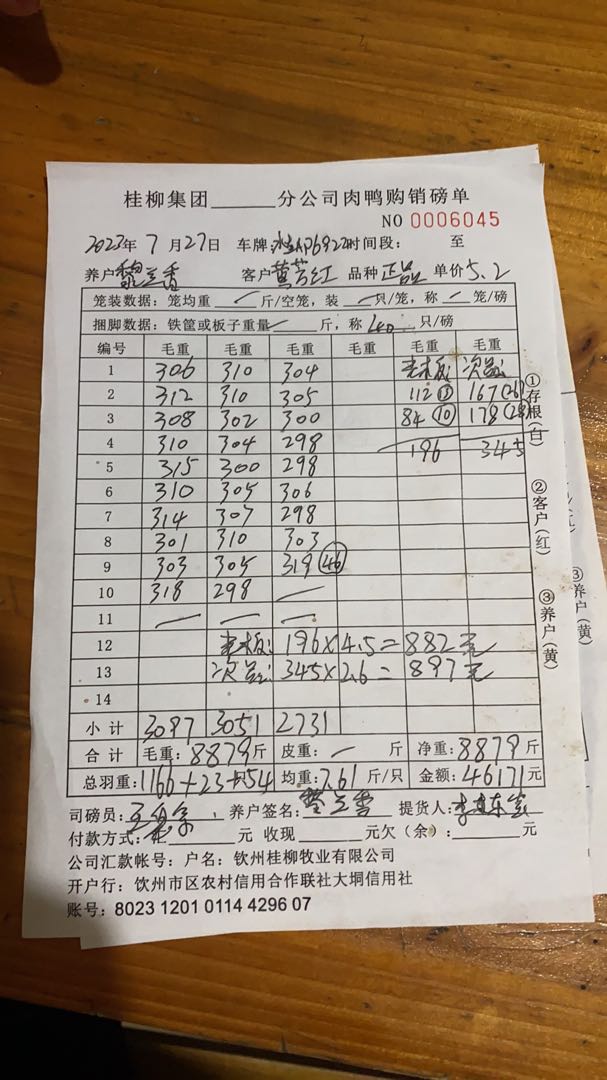 桂柳集团______分公司肉鸭购销磅单
NO 0006045
2023年 7 月27日 车牌: 时间段: 至
养户 客户 黄芳红 品种 正品 单价 5.2
笼装数据: 笼均重 — 斤/空笼, 装 — 只/笼, 称 — 笼/磅
捆脚数据: 铁筐或板子重量 — 斤, 称 40 只/磅
编号 毛重 毛重 毛重 毛重 毛重 毛重
1 306 310 304 毛木板 次品
2 312 310 305 112 167
3 308 302 300 84 ⑩ 178
4 310 304 298 196 345
5 315 300 298
6 310 305 306
7 314 307 298
8 301 310 303
9 303 305 319 (46)
10 318 298 —
11 — — —
12 196×4.5=882元
13 345×2.6=897元
14
小计 3097 3051 2731
合计 毛重: 8879斤 皮重: — 斤 净重: 8879斤
总羽重: 1166+23+54 均重: 7.61 斤/只 金额: 46171元
司磅员: 养户签名: 提货人:
付款方式: 汇______元 收现______元欠(余):______元
公司汇款帐号: 户名: 钦州桂柳牧业有限公司
开户行: 钦州市区农村信用合作联社大垌信用社
账号: 8023 1201 0114 4296 07
①存根(白)
②客户(红)
③养户(黄)
③养户(黄)